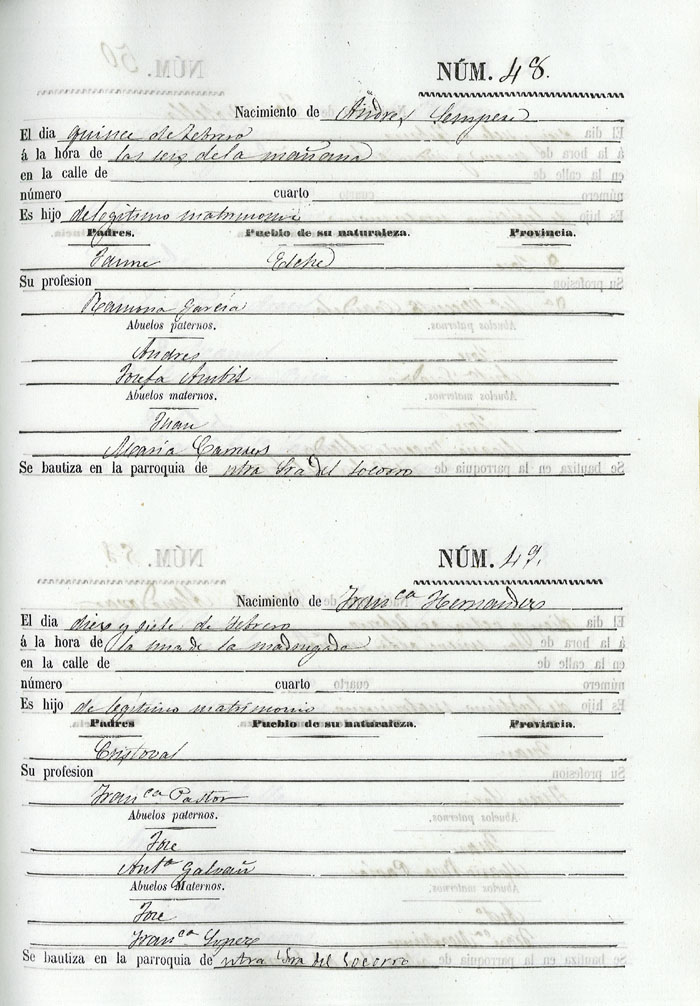 NÚM. 48.
Nacimiento de Andres Sempere
El dia quince de Febrero
á la hora de las seis de la mañana
en la calle de
número cuarto
Es hijo de legitimo matrimonio
Padres. Pueblo de su naturaleza. Provincia.
Jaime Elche
Su profesion
Ramona Garcia
Abuelos paternos.
Andres
Josefa
Abuelos maternos.
Juan
Maria
Se bautiza en la parroquia de ntra Sra del Socorro
NÚM. 49.
Nacimiento de Fran.ca Hernandes
El dia dies y siete de Febrero
á la hora de la una de la madrugada
en la calle de
número cuarto
Es hijo de legitimo matrimonio
Padres Pueblo de su naturaleza. Provincia.
Cristoval
Su profesion
Fran.ca Pastor
Abuelos paternos.
Jose
Ant.a Galvañ
Abuelos Maternos.
Jose
Fran.ca Lopez
Se bautiza en la parroquia de ntra Sra del Socorro